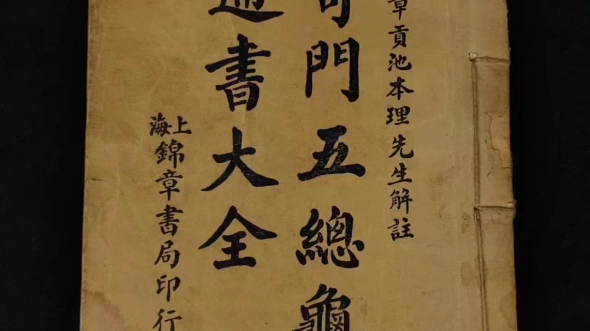 章貢池本理先生解註
奇門五總龜
書大全
上海錦章書局印行